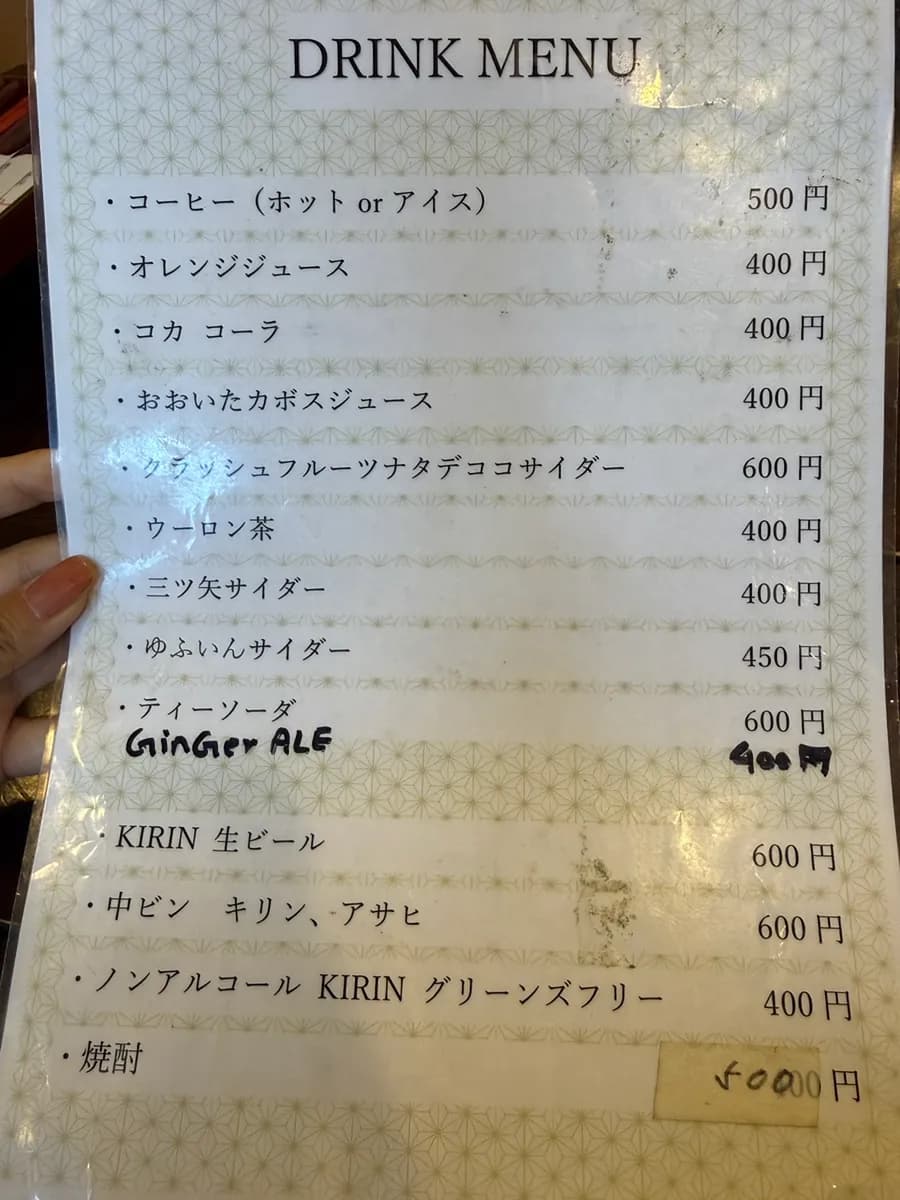 DRINK MENU
・コーヒー（ホット or アイス） 500 円
・オレンジジュース 400 円
・コカ コーラ 400 円
・おおいたカボスジュース 400 円
・クラッシュフルーツナタデココサイダー 600 円
・ウーロン茶 400 円
・三ツ矢サイダー 400 円
・ゆふいんサイダー 450 円
・ティーソーダ 600 円
GinGer ALE 400円
・KIRIN 生ビール 600 円
・中ビン　キリン、アサヒ 600 円
・ノンアルコール KIRIN グリーンズフリー 400 円
・焼酎 500 円